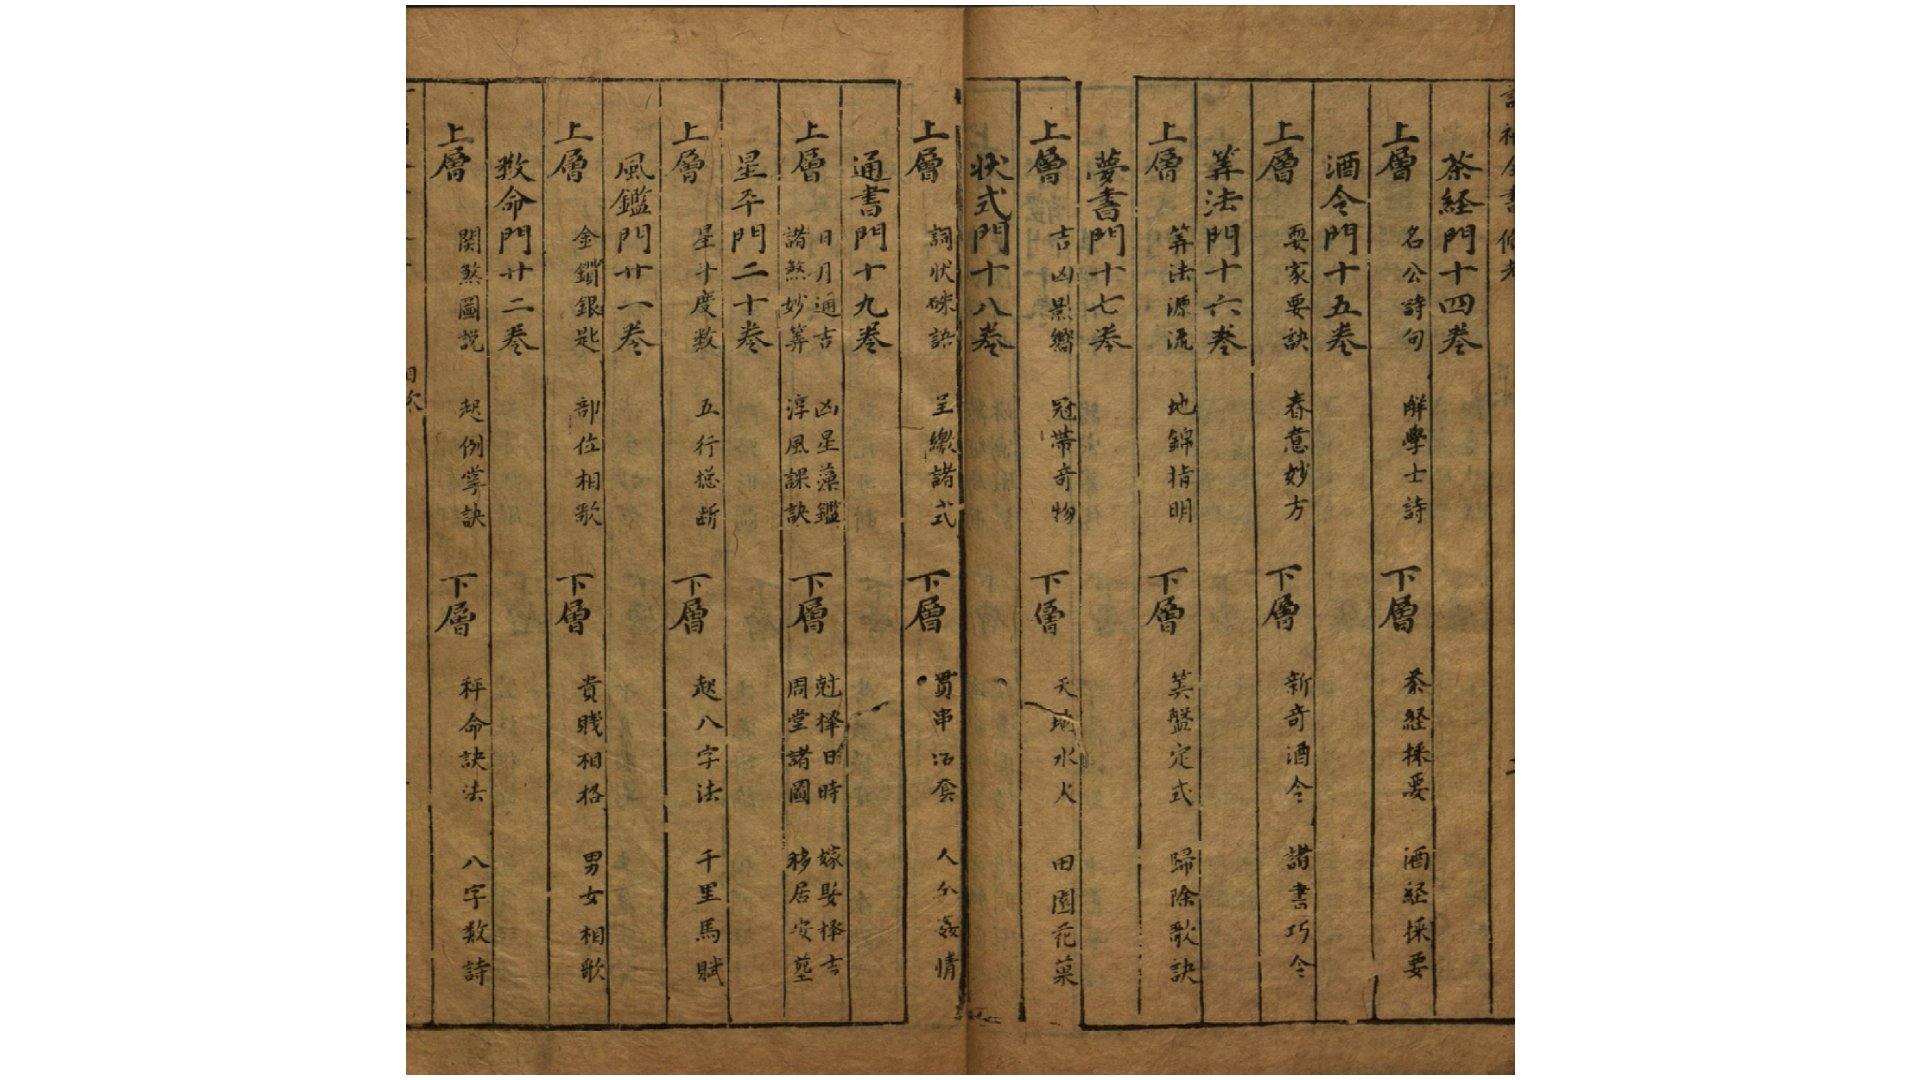 茶経門十四巻
上層 名公詩句 解學士詩 下層 茶経採要 酒経採要
酒令門十五巻
上層 耍家要訣 春意妙方 下層 新奇酒令 諸書巧令
筭法門十六巻
上層 筭法源流 地錦指明 下層 筭盤定式 歸除歌訣
夢書門十七巻
上層 吉凶影響 冠帯奇物 下層 天地水火 田園花菓
状式門十八巻
上層 詞状硃語 呈繳諸式 下層 貫串活套 人分姦情
通書門十九巻
上層 日月通吉 凶星藻鑑 下層 尅擇日時 嫁娶擇吉
諸煞妙筭 淳風課訣 周堂諸圖 移居安塟
星平門二十巻
上層 星斗度数 五行捴断 下層 起八字法 千里馬賦
風鑑門廿一巻
上層 金鎖銀匙 部位相歌 下層 貴賎相格 男女相歌
数命門廿二巻
上層 関煞圖説 起例掌訣 下層 秤命訣法 八字数詩
目次